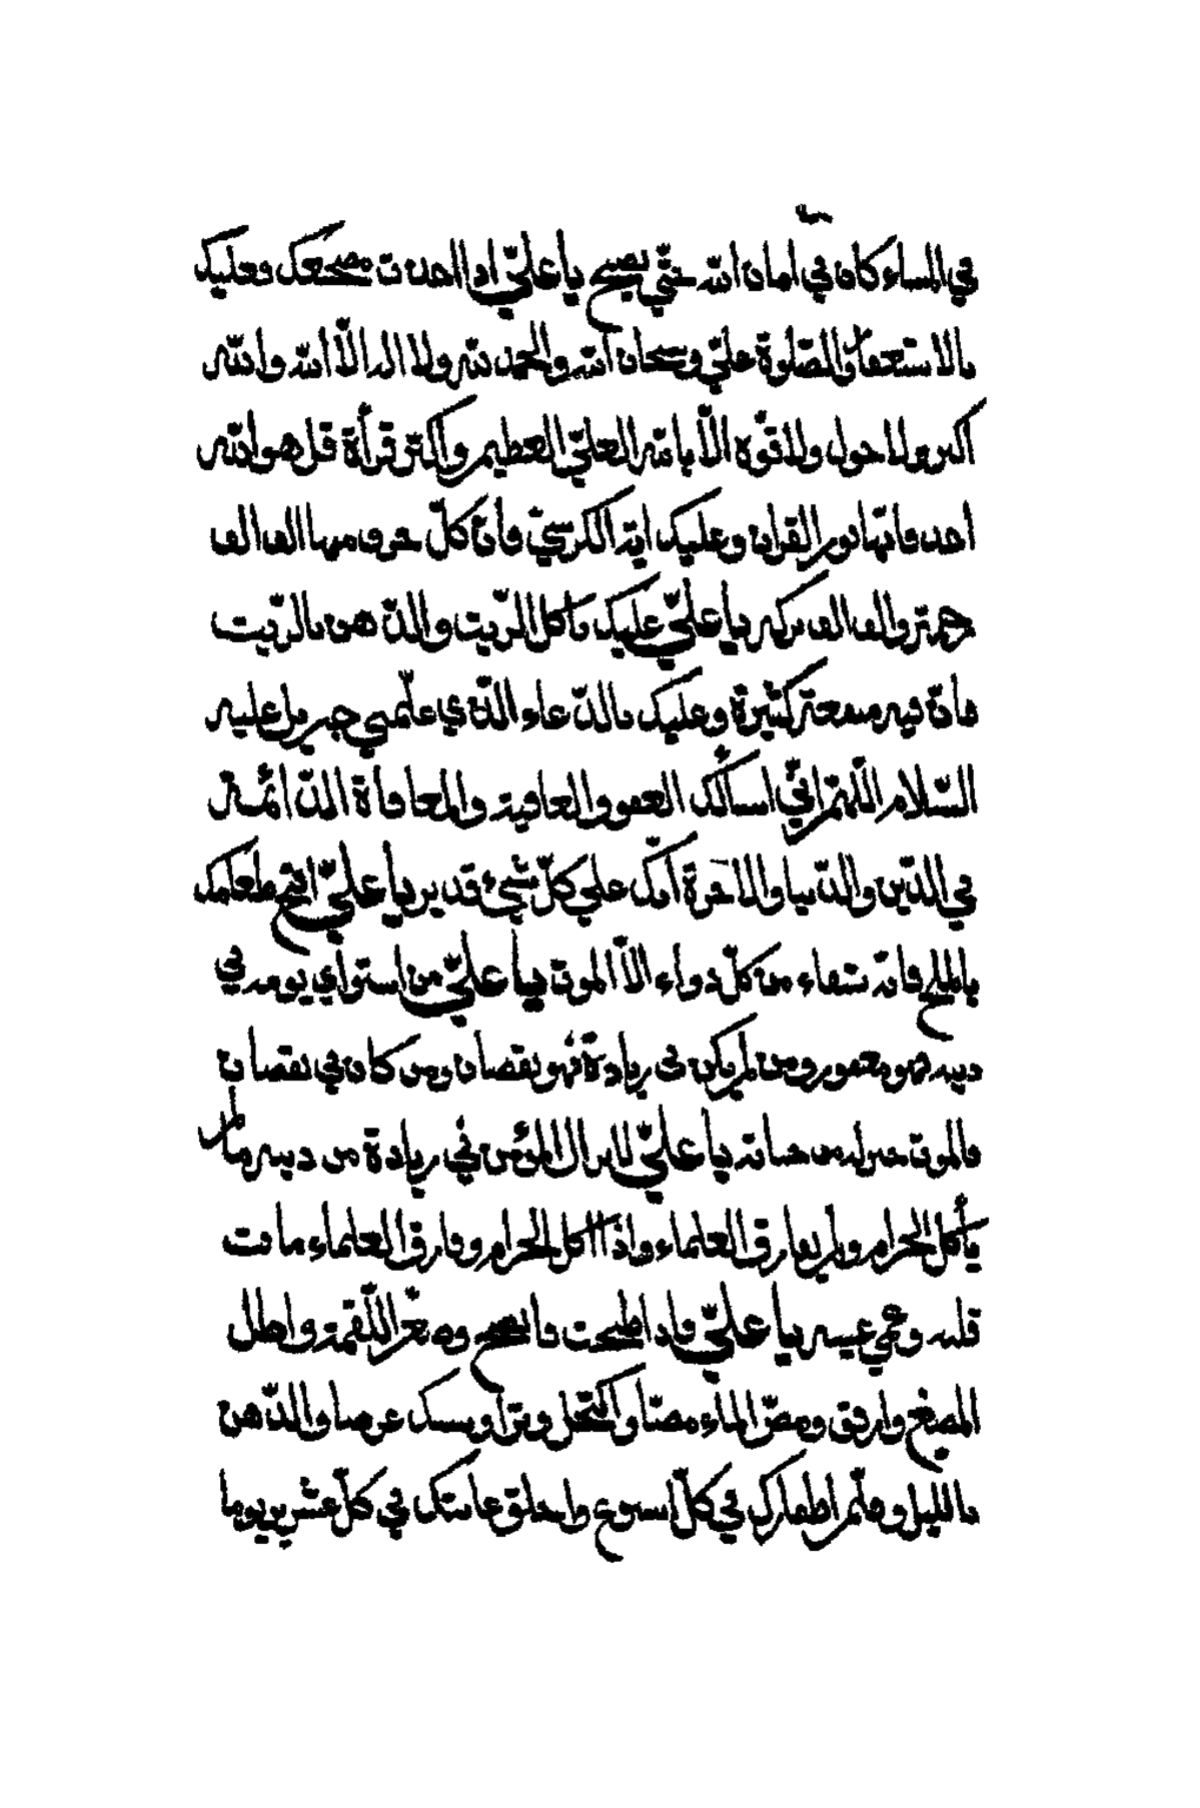 في المساء كان في امان الله حتّي يصبح يا عليّ اذا اخذت مضجعك فعليك
بالاستغفار والصّلوة عليّ وسبحان الله والحمد لله ولا اله الاّ الله والله
اكبر ولا حول ولا قوّة الاّ بالله العليّ العظيم واكثر قرأة قل هو الله
احد فانّها نور القران وعليك اية الكرسيّ فانّ كلّ حرف منها الف الف
رحمة والف الف بركة يا عليّ عليك باكل الزّيت والدّهن بالزّيت
فانّ فيه منفعة كثيرة وعليك بالدّعاء الّذي علّمني جبريل عليه
السّلام اللّهم انّي اسألك العفو والعافية والمعافاة الدّائمة
في الدّين والدّنيا والآخرة انّك علي كلّ شيء قدير يا عليّ افتح طعامك
بالملح فانّه شفاء من كلّ دواء الاّ الموت يا عليّ من استواي يومه في
دينه فهو مغمور ومن لم يكن في زيادة فهو نقصان ومن كان في نقصان
فالموت خير له من حياته يا عليّ لا يزال المؤمن في زيادة من دينه ما لم
يأكل الحرام ولم يفارق العلماء واذا اكل الحرام وفارق العلماء مات
قلبه وعمي عينيه يا عليّ فاذا طبخت فانضج وصغّر اللّقمة واطل
المضغ وارفق ومصّ الماء مصّا واكتحل وترا ويسك عرضا والدّهن
بالليل وقلّم اظفارك في كلّ اسبوع واحلق عانتك في كلّ عشرين يوما